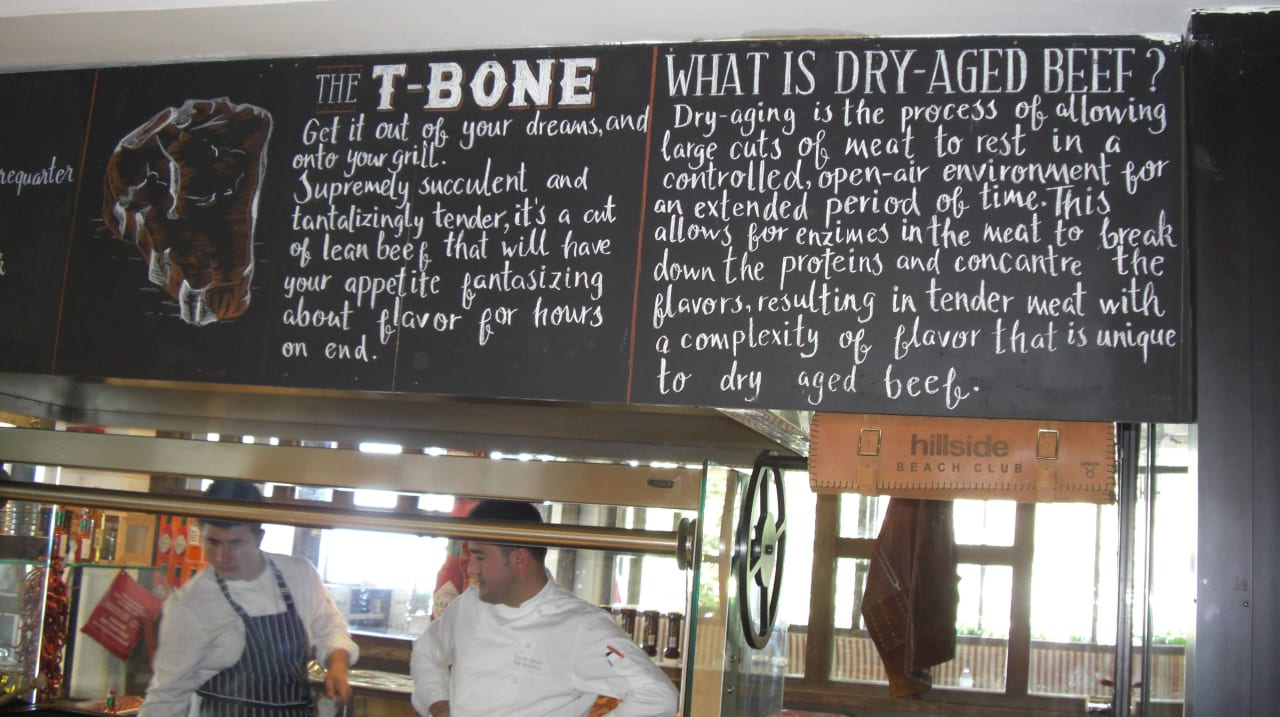 requarter
k
THE T-BONE
Get it out of your dreams, and
onto your grill.
Supremely succulent and
tantalizingly tender, it's a cut
of lean beef that will have
your appetite fantasizing
about flavor for hours
on end.
WHAT IS DRY-AGED BEEF?
Dry-aging is the process of allowing
large cuts of meat to rest in a
controlled, open-air environment for
an extended period of time. This
allows for enzimes in the meat to break
down the proteins and concantre the
flavors, resulting in tender meat with
a complexity of flavor that is unique
to dry aged beef.
hillside
BEACH CLUB